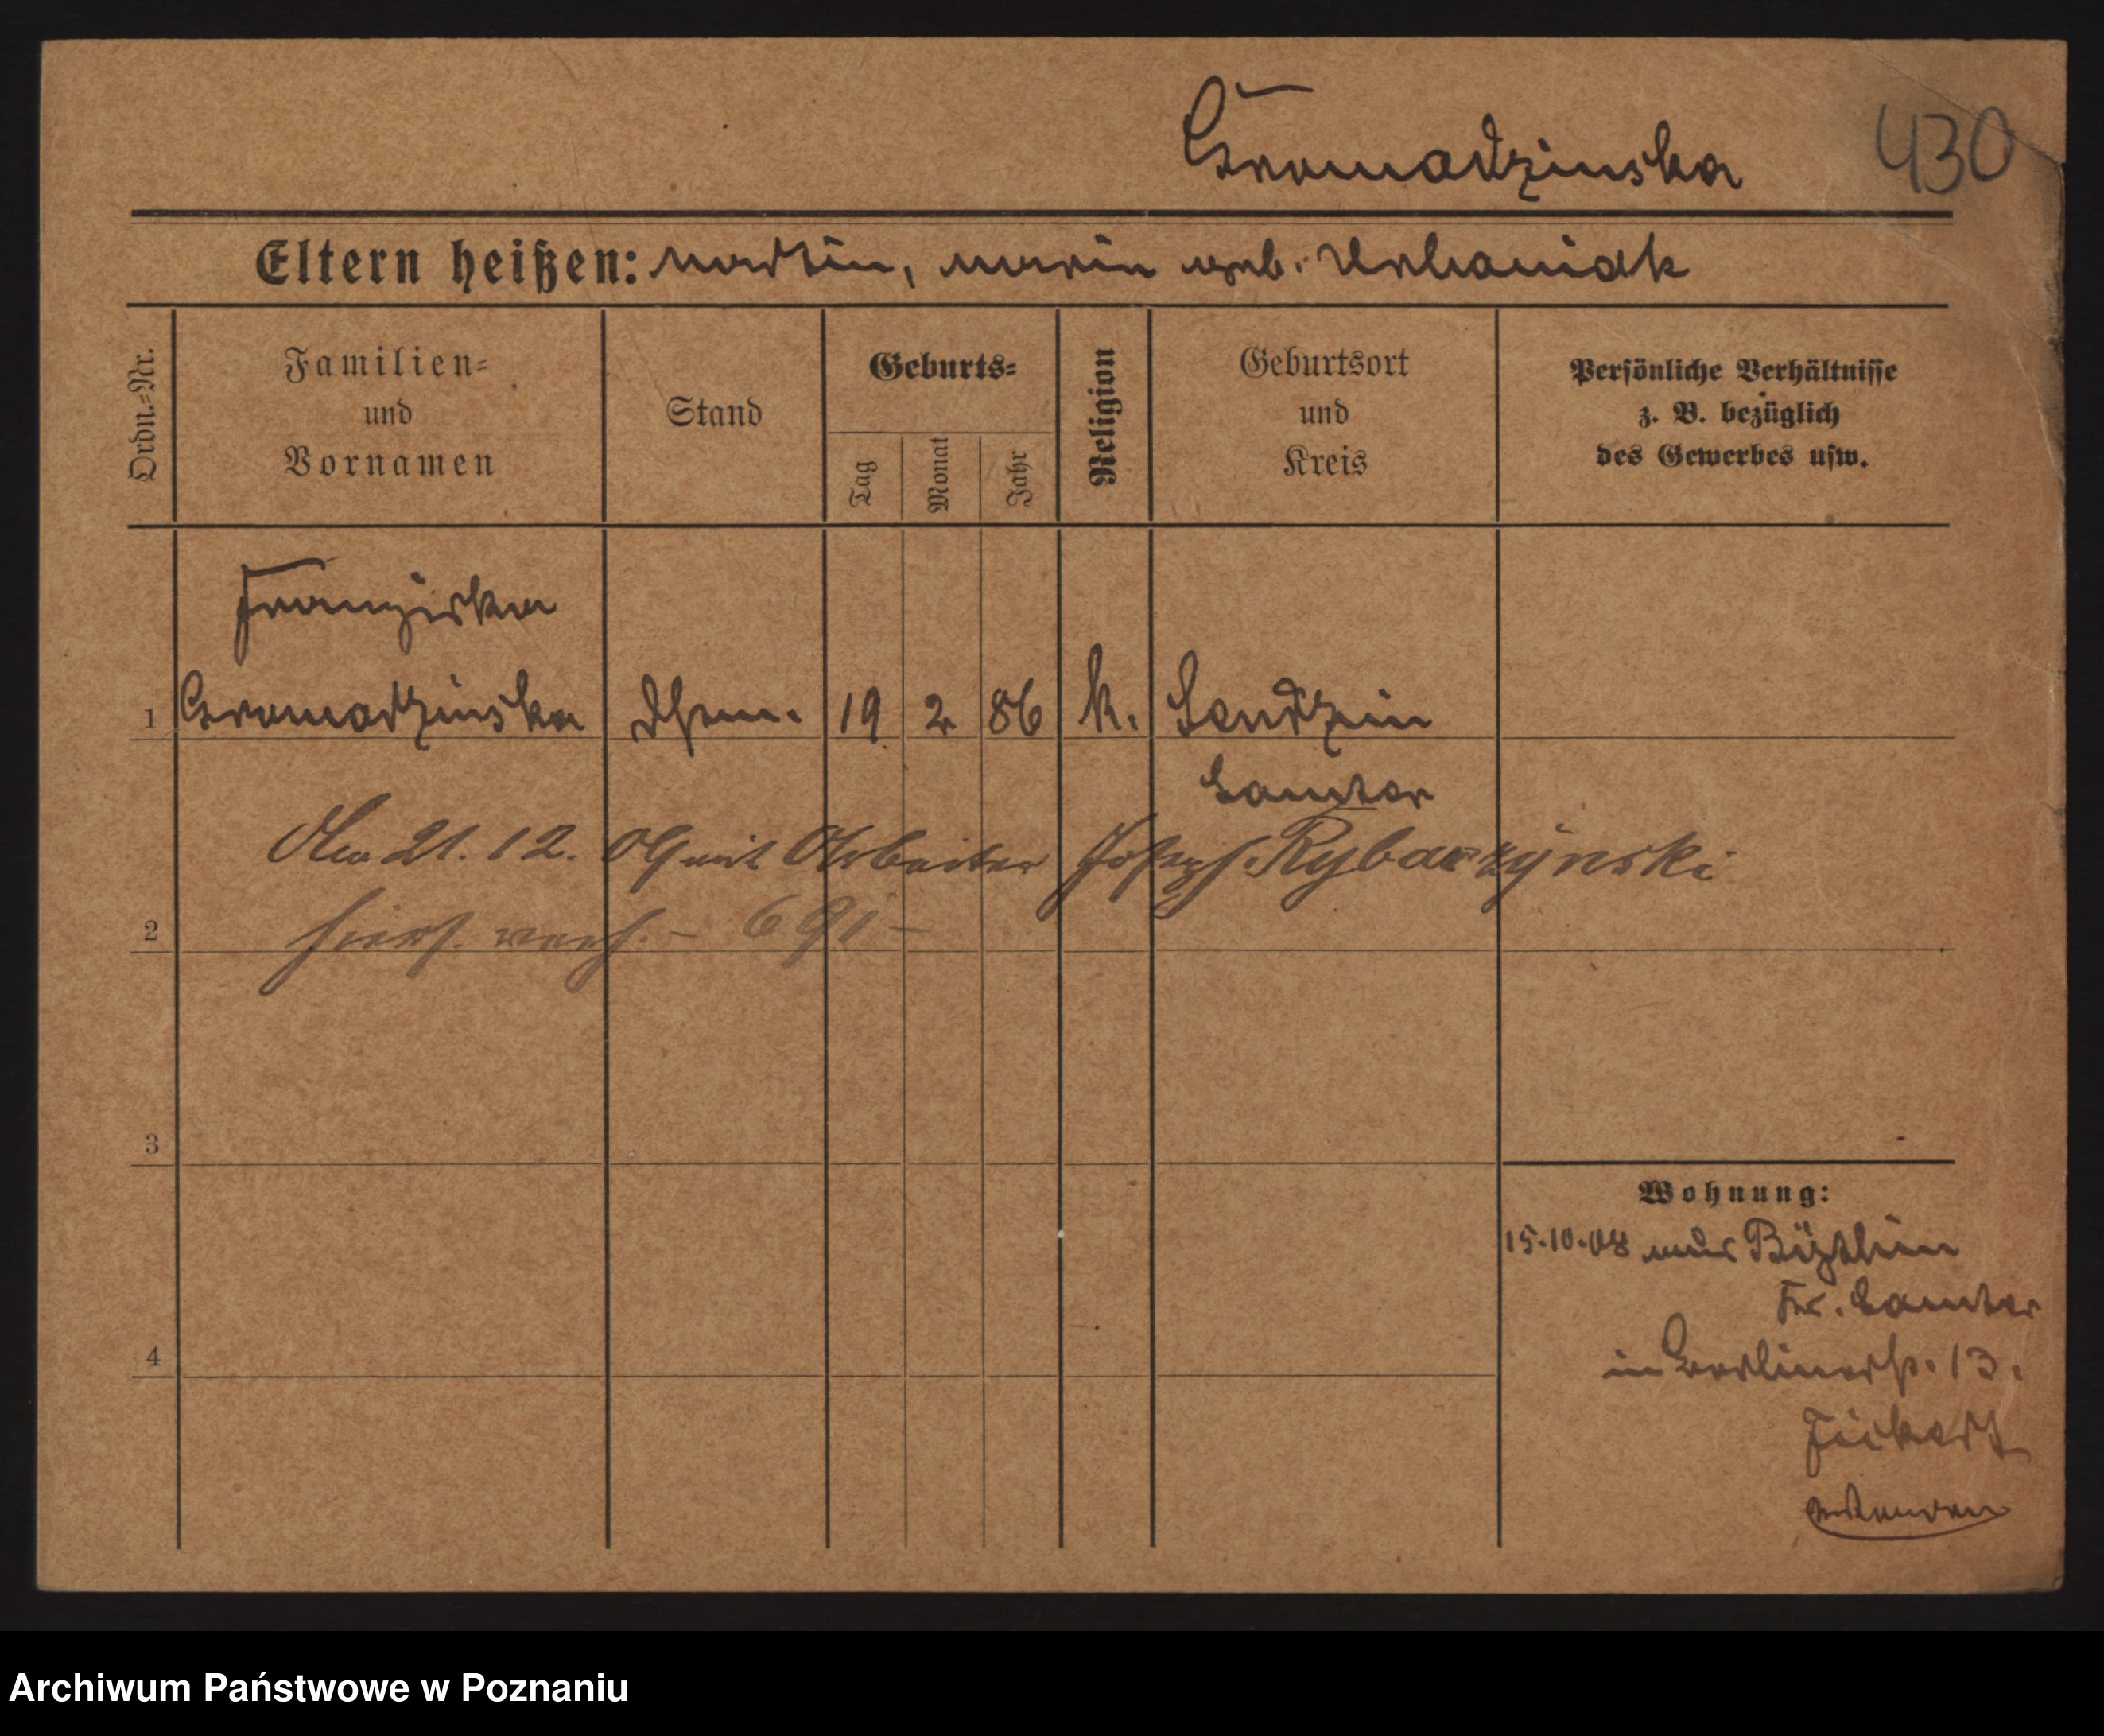 Gromadzinska 430
Eltern heißen: Martin, Marie geb. Urbaniak
Ordn.-Nr.
Familien-
und
Vornamen
Stand
Geburts-
Tag
Monat
Jahr
Religion
Geburtsort
und
Kreis
Persönliche Verhältnisse
z. B. bezüglich
des Gewerbes usw.
Franziska
1 Gromadzinska 19 2 86 k. Sendzin
Samter
Am 21. 12. 09 mit Arbeiter Josef Rybarzynski
2 hiers. verh. - 691 -
3
Wohnung:
15.10.08 aus Bythin
Kr. Samter
4 in Berlinerstr. 13.
Archiwum Państwowe w Poznaniu